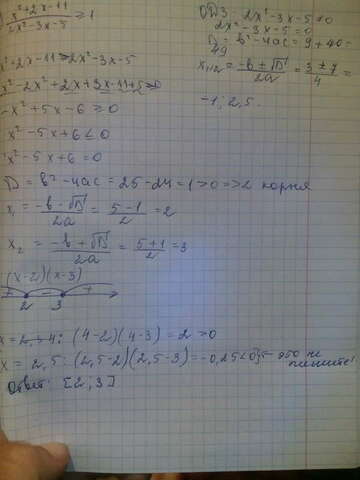 x²+2x-11 / 2x²-3x-5 ≥ 1
x²+2x-11 ≥ 2x²-3x-5
x²-2x²+2x+3x-11+5≥0
-x²+5x-6 ≥ 0
x²-5x+6 ≤ 0
x²-5x+6=0
D = b²-4ac = 25-24=1>0 => 2 корня
x₁ = -b-√D / 2a = 5-1 / 2 = 2
x₂ = -b+√D / 2a = 5+1 / 2 = 3
(x-2)(x-3)
+ - +
2 3
x = 4: (4-2)(4-3)=2>0
x = 2,5: (2,5-2)(2,5-3)=-0,25<0 } это не пишите!
Ответ: [2;3]
ОДЗ: 2x²-3x-5≠0
2x²-3x-5=0
D = b²-4ac = 9+40=
49
x₁,₂ = -b±√D / 2a = 3±7 / 4 =
-1; 2,5.